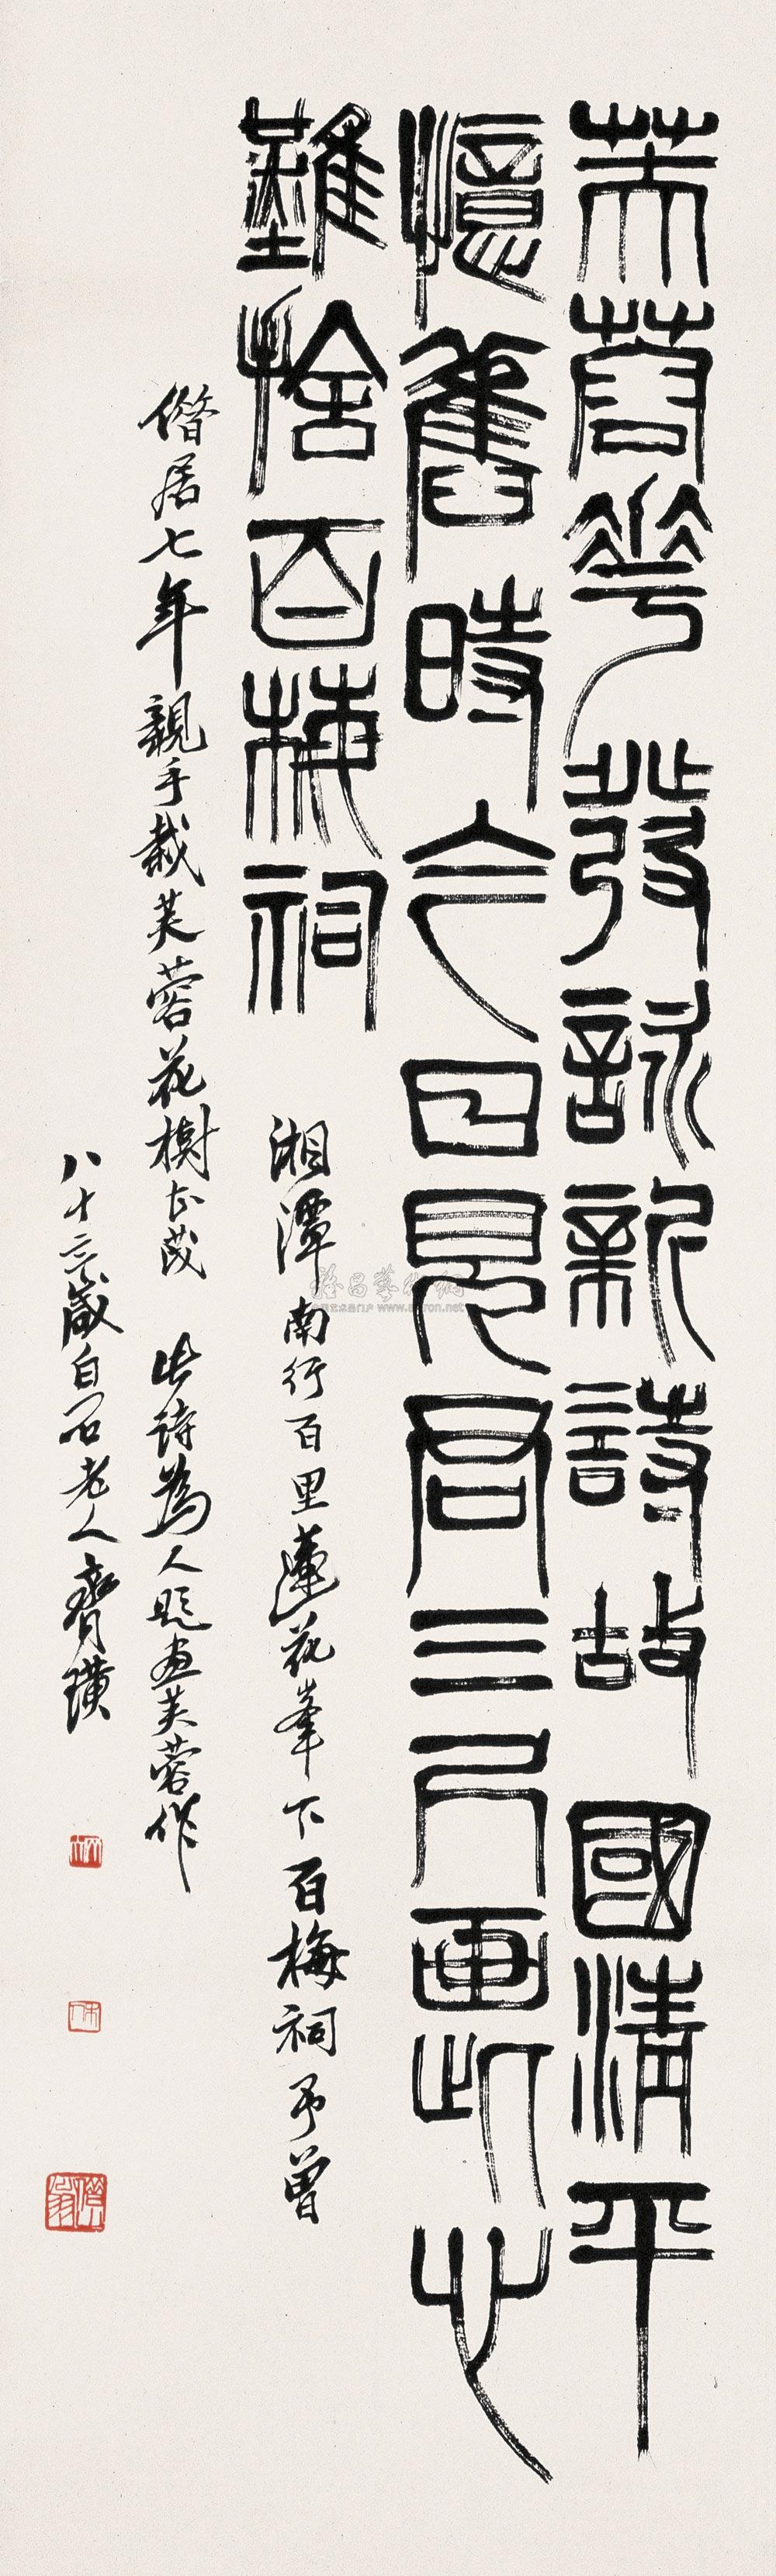 芙蓉花發詠新詩故國清平
憶舊時今日見君三尺画此心
難捨百梅祠
湘潭南行百里蓮花峯下百梅祠予曾
僭居七年親手栽芙蓉花樹正茂 此詩為人題画芙蓉作
八十六歲白石老人齊璜